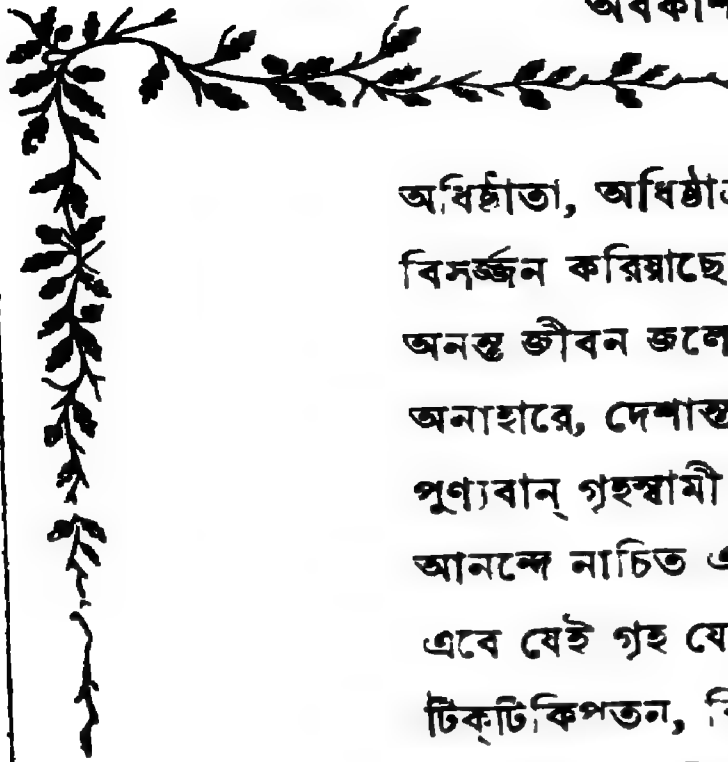 অবকাশ
অধিষ্ঠাতা, অধিষ্ঠা
বিসর্জ্জন করিয়াছে
অনন্ত জীবন জলে
অনাহারে, দেশান্ত
পুণ্যবান্ গৃহস্বামী
আনন্দে নাচিত এ
এবে যেই গৃহ যে
টিক্‌টিকিপতন,